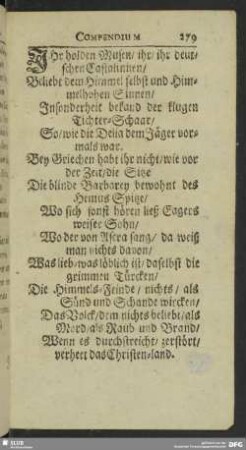 COMPENDIUM 279
IHr holden Musen/ ihr/ ihr deut-
schen Castalinnen/
Beliebt dem Himmel selbst und Him-
melhohen Sinnen/
Insonderheit bekand der klugen
Tichter-Schaar/
So/ wie die Delia dem Jäger vor-
mals war.
Bey Griechen habt ihr nicht/ wie vor
der Zeit/ die Sitze
Die blinde Barbarey bewohnt des
Hemus Spitze/
Wo sich sonst hören ließ Eagers
weiser Sohn/
Wo der von Ascra sang/ da weiß
man nichts davon/
Was lieb/ was löblich ist/ daselbst die
grimmen Türcken/
Die Himmels-Feinde/ nichts/ als
Sünd und Schande wircken/
Das Volck/ dem nichts beliebt/ als
Mord/ als Raub und Brand/
Wenn es durchstreicht/ zerstört/
verheert das Christen-land.
SLUB
DFG